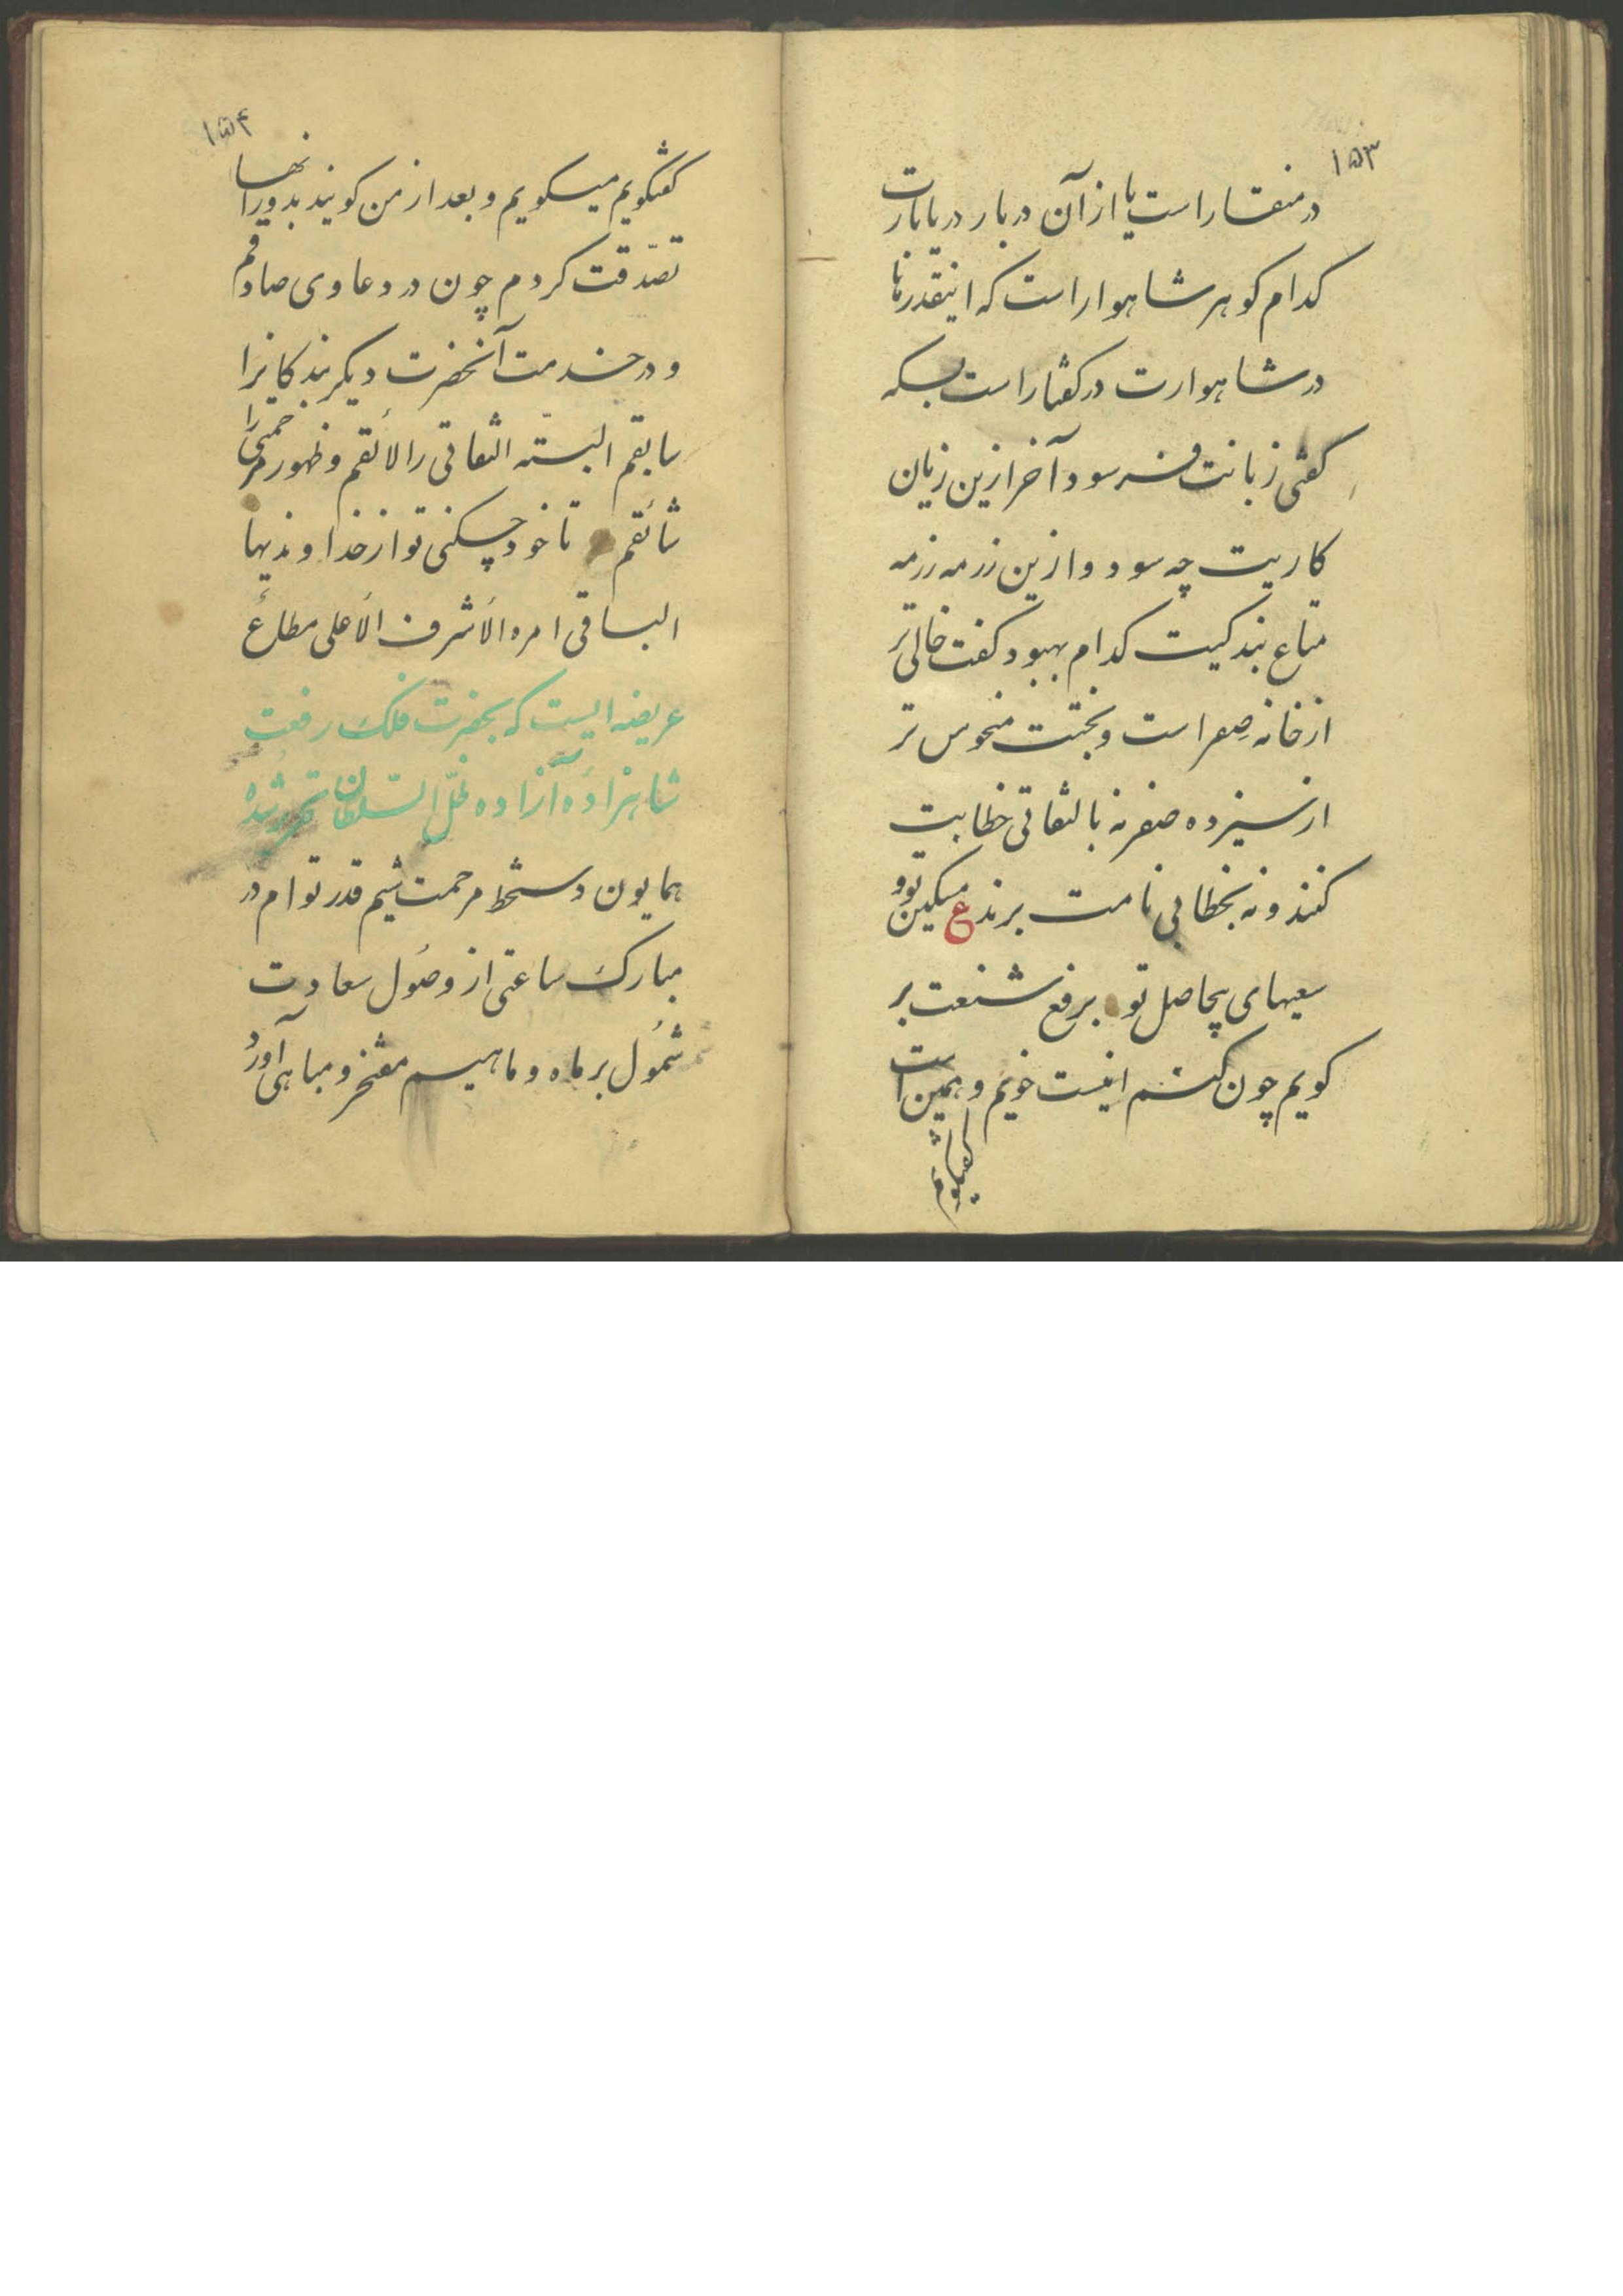 ۱۵۳
در منقار است یا از آن دربار دریابارت
کدام کوهر شاهوار است که اینقدر
در شاهوارت در کفتار است بسکه
کفتی زبانت فرسود آخر ازین زیان
کاریت چه سود و ازین رزمه رزمه
متاع بندکیت کدام بهبود کفت خالی تر
از خانه صِفر است و بختت منحوس تر
از سیزده صفر نه بالتفاتی خطابت
کنند و نه بخطابی نامت برند ع مسکین تو و
سعیهای بیحاصل تو برفع شنعت بر
کویم چون کنم اینست خویم و همین است
کفتکویم
۱۵۴
کفتکویم میکویم و بعد از من کویند بدورانها
تصدّقت کردم چون در دعاوی صادقم
و در خدمت آنحضرت دیکر بندکانرا
سابقم البتّه التفاتی را لائقم و ظهور مرحمتی را
شائقم تا خود چکنی تو از خداوندیها
الباقی امره الأشرف الأعلی مطاعٌ
عریضه ایست که بحضرت فلک رفعت
شاهزادهٔ آزاده ظلّ السّلطان تحریر شده
همایون دستخط مرحمت شیم قدر توام در
مبارک ساعتی از وصُول سعادت
شمُول بر ماه و ماهیم مفتخر و مباهی آورد